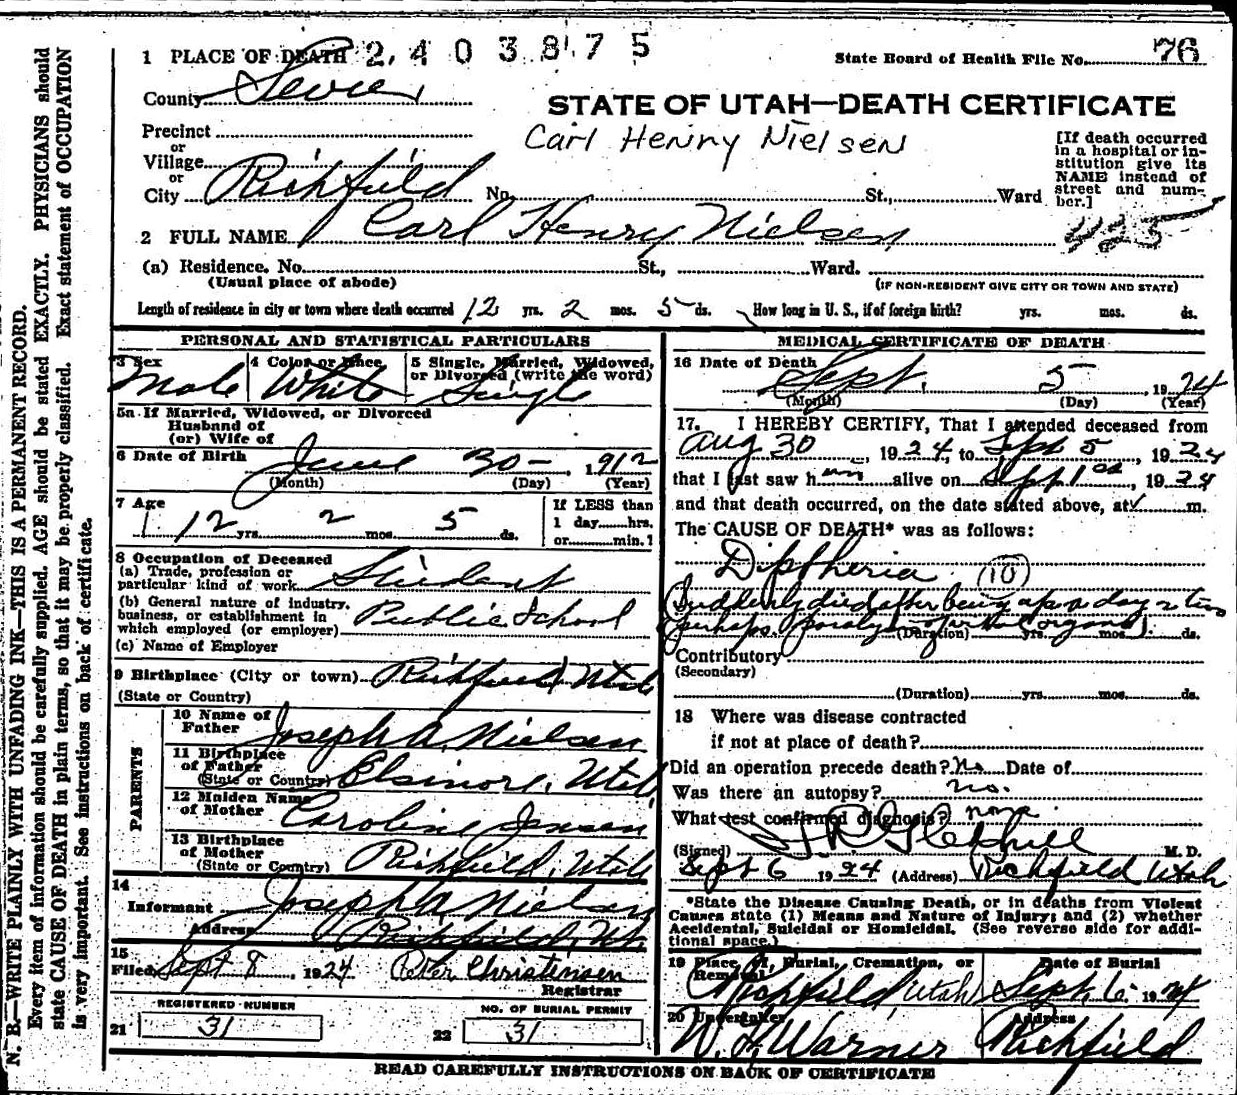 N. B.—WRITE PLAINLY WITH UNFADING INK—THIS IS A PERMANENT RECORD.
Every item of information should be carefully supplied. AGE should be stated EXACTLY. PHYSICIANS should
state CAUSE OF DEATH in plain terms, so that it may be properly classified. Exact statement of OCCUPATION
is very important. See instructions on back of certificate.
1 PLACE OF DEATH 2403875
State Board of Health File No. 76
County Sevier
STATE OF UTAH—DEATH CERTIFICATE
Precinct
or
Village
or
City Richfield No. St., Ward
Carl Henry Nielsen
[If death occurred
in a hospital or in-
stitution give its
NAME instead of
street and num-
ber.]
2 FULL NAME Carl Henry Nielsen
425
(a) Residence. No. St., Ward.
(Usual place of abode) (IF NON-RESIDENT GIVE CITY OR TOWN AND STATE)
Length of residence in city or town where death occurred 12 yrs. 2 mos. 5 ds. How long in U. S., if of foreign birth? yrs. mos. ds.
PERSONAL AND STATISTICAL PARTICULARS
3 Sex 4 Color or Race 5 Single, Married, Widowed,
or Divorced (write the word)
Male White Single
5a If Married, Widowed, or Divorced
Husband of
(or) Wife of
6 Date of Birth June 30 1912
(Month) (Day) (Year)
7 Age If LESS than
12 yrs. 2 mos. 5 ds. 1 day hrs.
or min.?
8 Occupation of Deceased
(a) Trade, profession or
particular kind of work Student
(b) General nature of industry,
business, or establishment in
which employed (or employer) Public School
(c) Name of Employer
9 Birthplace (City or town) Richfield Utah
(State or Country)
PARENTS
10 Name of
Father Joseph A. Nielsen
11 Birthplace
of Father
(State or Country) Elsinore, Utah
12 Maiden Name
of Mother Caroline Jensen
13 Birthplace
of Mother
(State or Country) Richfield, Utah
14
Informant Joseph A Nielsen
Address Richfield, Ut.
15
Filed Sept 8, 1924 Peter Christensen
Registrar
REGISTERED NUMBER NO. OF BURIAL PERMIT
21 31 22 31
MEDICAL CERTIFICATE OF DEATH
16 Date of Death
Sept. 5 1924
(Month) (Day) (Year)
17. I HEREBY CERTIFY, That I attended deceased from
Aug 30, 1924, to Sept 5, 1924
that I last saw him alive on Sept 1st, 1924
and that death occurred, on the date stated above, at m.
The CAUSE OF DEATH* was as follows:
Diptheria (10)
Suddenly died after being up a day or two
(perhaps paralysis of vital organs).
(Duration) yrs. mos. ds.
Contributory
(Secondary)
(Duration) yrs. mos. ds.
18 Where was disease contracted
if not at place of death?
Did an operation precede death? No Date of
Was there an autopsy? no.
What test confirmed diagnosis? none
(Signed) M. D.
Sept 6 1924 (Address) Richfield Utah
*State the Disease Causing Death, or in deaths from Violent
Causes state (1) Means and Nature of Injury; and (2) whether
Accidental, Suicidal or Homicidal. (See reverse side for addi-
tional space.)
19 Place of, Burial, Cremation, or Date of Burial
Removal
Richfield Utah Sept. 6 1924
20 Undertaker Address
W. Warner Richfield
READ CAREFULLY INSTRUCTIONS ON BACK OF CERTIFICATE